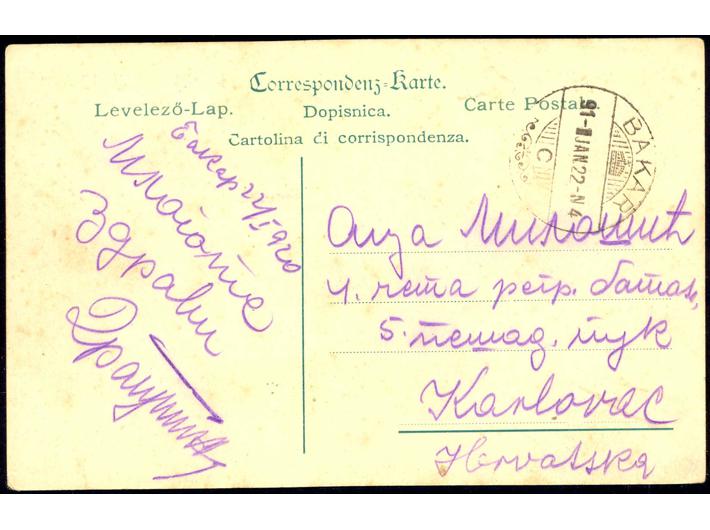 Correspondenz-Karte.
Levelező-Lap. Dopisnica. Carte Postale.
Cartolina di corrispondenza.
BAKAR
JAN 22-N4
C
Бакар 22/I 920
Многоте
здрави
Драгутин
Анђа Милошевић
4. чета регр. батаљ.
5. пешад. пук
Karlovac
Hrvatska